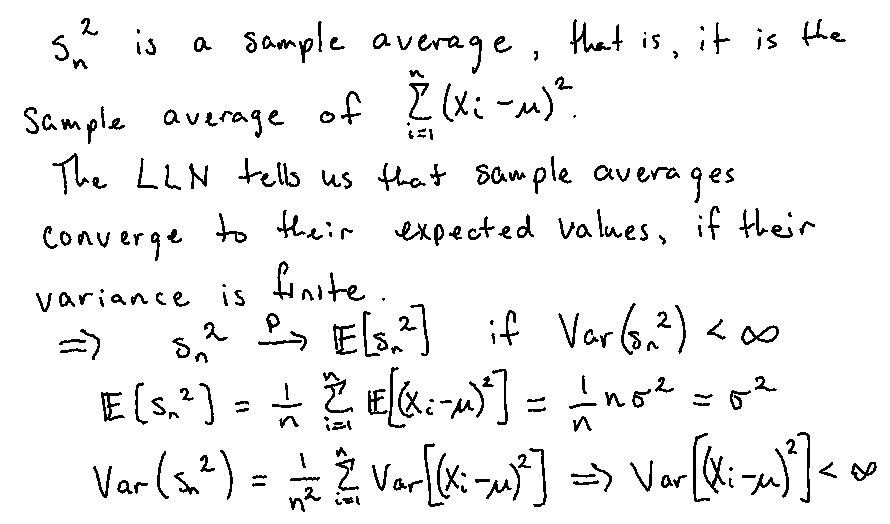 Sₙ² is a sample average, that is, it is the
sample average of ∑ᵢ₌₁ⁿ (Xᵢ - μ)².
The LLN tells us that sample averages
converge to their expected values, if their
variance is finite.
⇒ Sₙ² →ᵖ 𝔼[Sₙ²] if Var(Sₙ²) < ∞
𝔼[Sₙ²] = 1/n ∑ᵢ₌₁ⁿ 𝔼[(Xᵢ-μ)²] = 1/n nσ² = σ²
Var(Sₙ²) = 1/n² ∑ᵢ₌₁ⁿ Var[(Xᵢ-μ)²] ⇒ Var[(Xᵢ-μ)²] < ∞